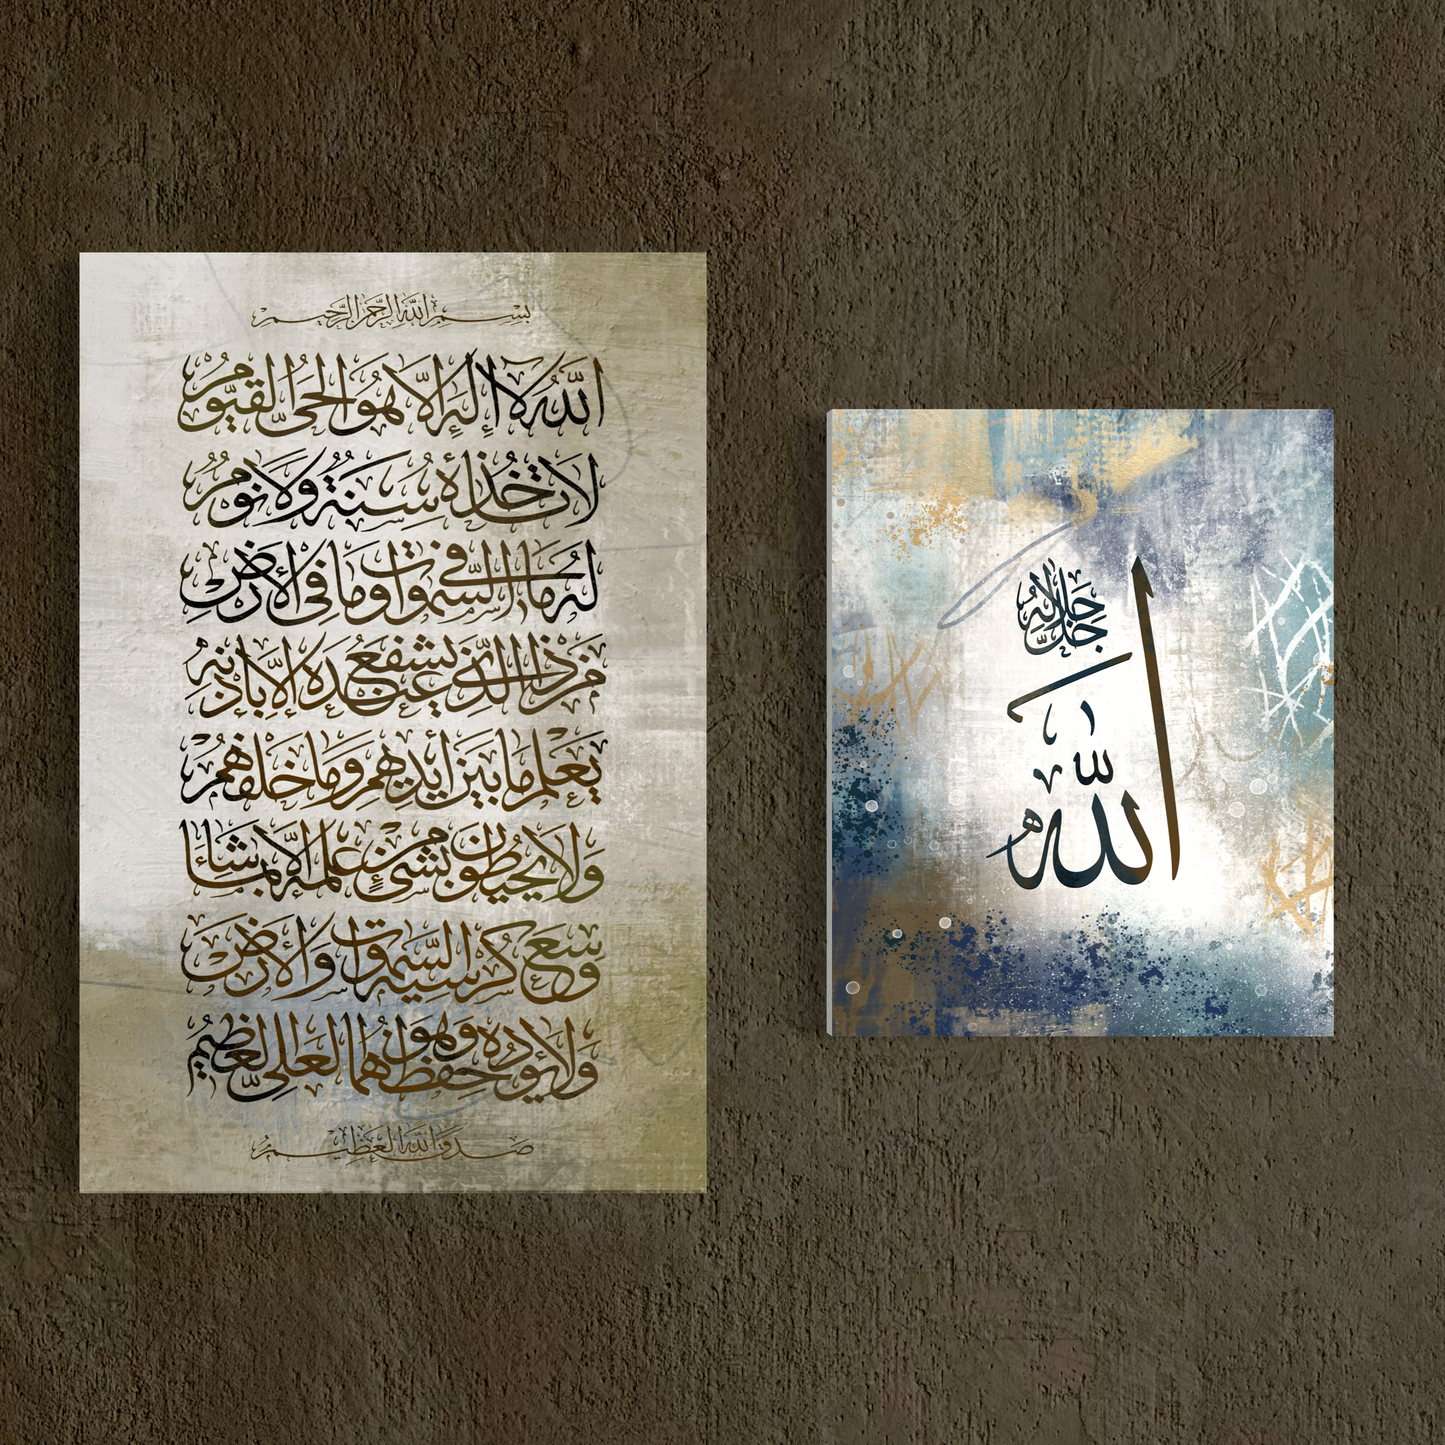 بسم الله الرحمن الرحيم
الله لا إله إلا هو الحي القيوم
لا تأخذه سنة ولا نوم
له ما في السموات وما في الأرض
من ذا الذي يشفع عنده إلا بإذنه
يعلم ما بين أيديهم وما خلفهم
ولا يحيطون بشيء من علمه إلا بما شاء
وسع كرسيه السموات والأرض
ولا يؤده حفظهما وهو العلي العظيم
صدق الله العظيم
جل جلاله
الله